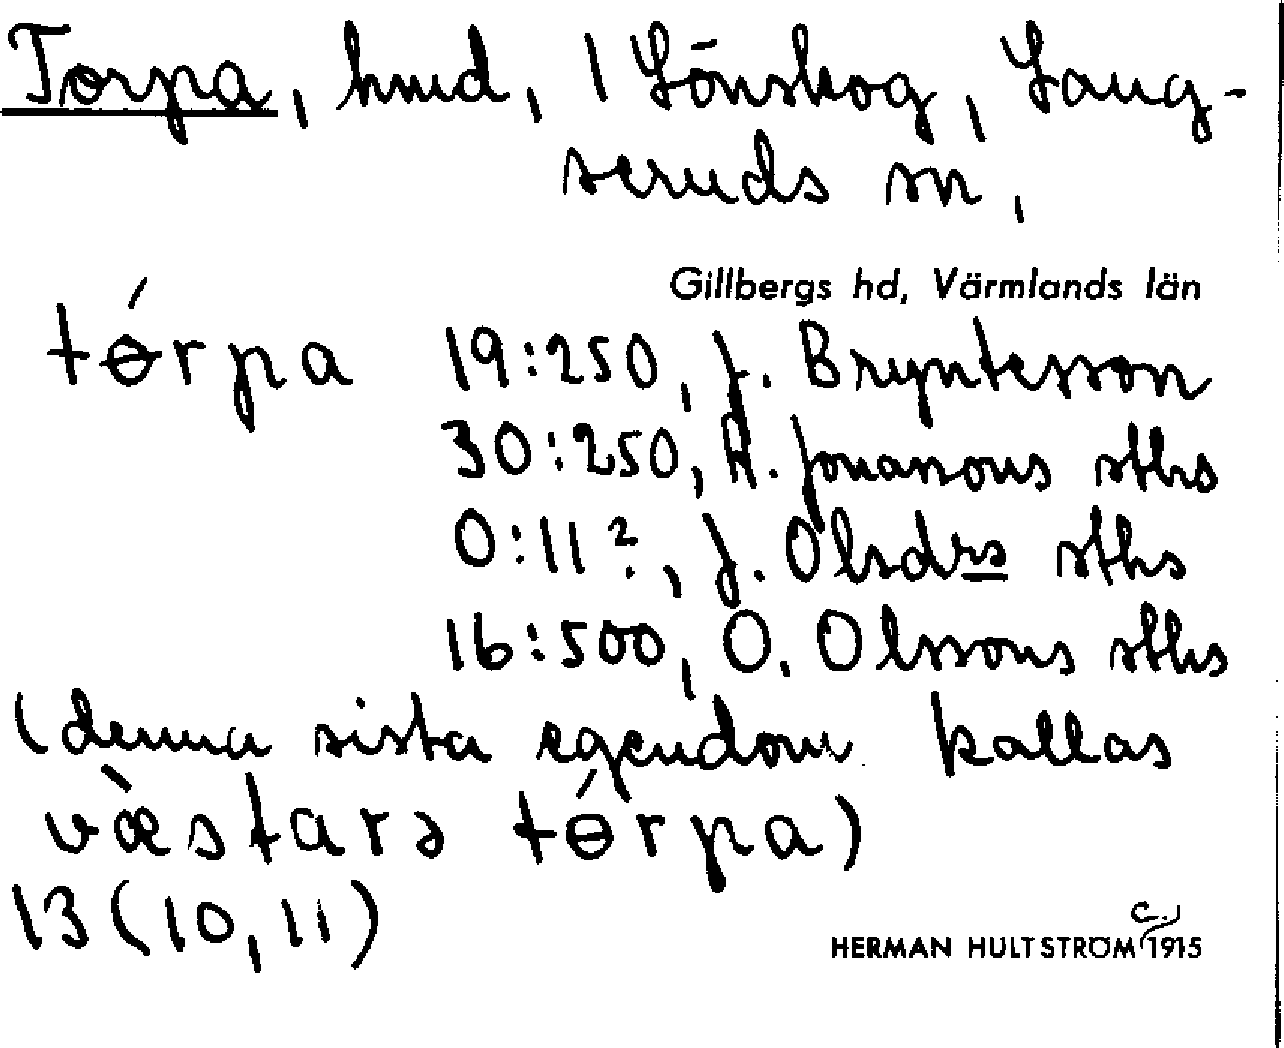 Torpa, hmd, 1 Lönskog, Lång-
seruds sn,
Gillbergs hd, Värmlands län
tɵ́rpa 19:250, J. Bryntesson
30:250, A. Jonassons sthس
0:11?, J. Olsdrs sths
16:500, O. Olssons sths
(denna sista egendom kallas
væ̀starə tɵ́rpa)
13 (10, 11)
HERMAN HULTSTRÖM c. 1915